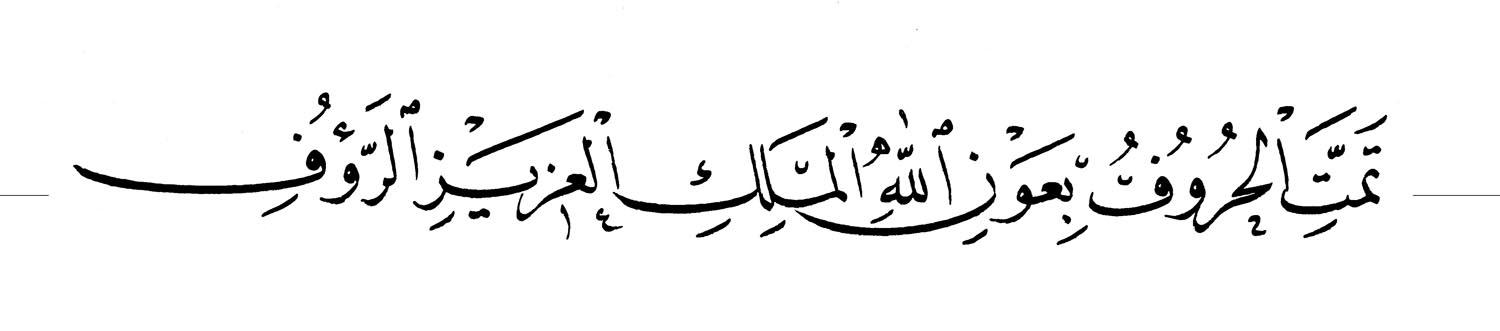 تَمَّتِ ٱلْحُرُوفُ بِعَوْنِ ٱللّٰهِ ٱلْمَلِكِ ٱلْعَزِيزِ ٱلرَّؤُفِ